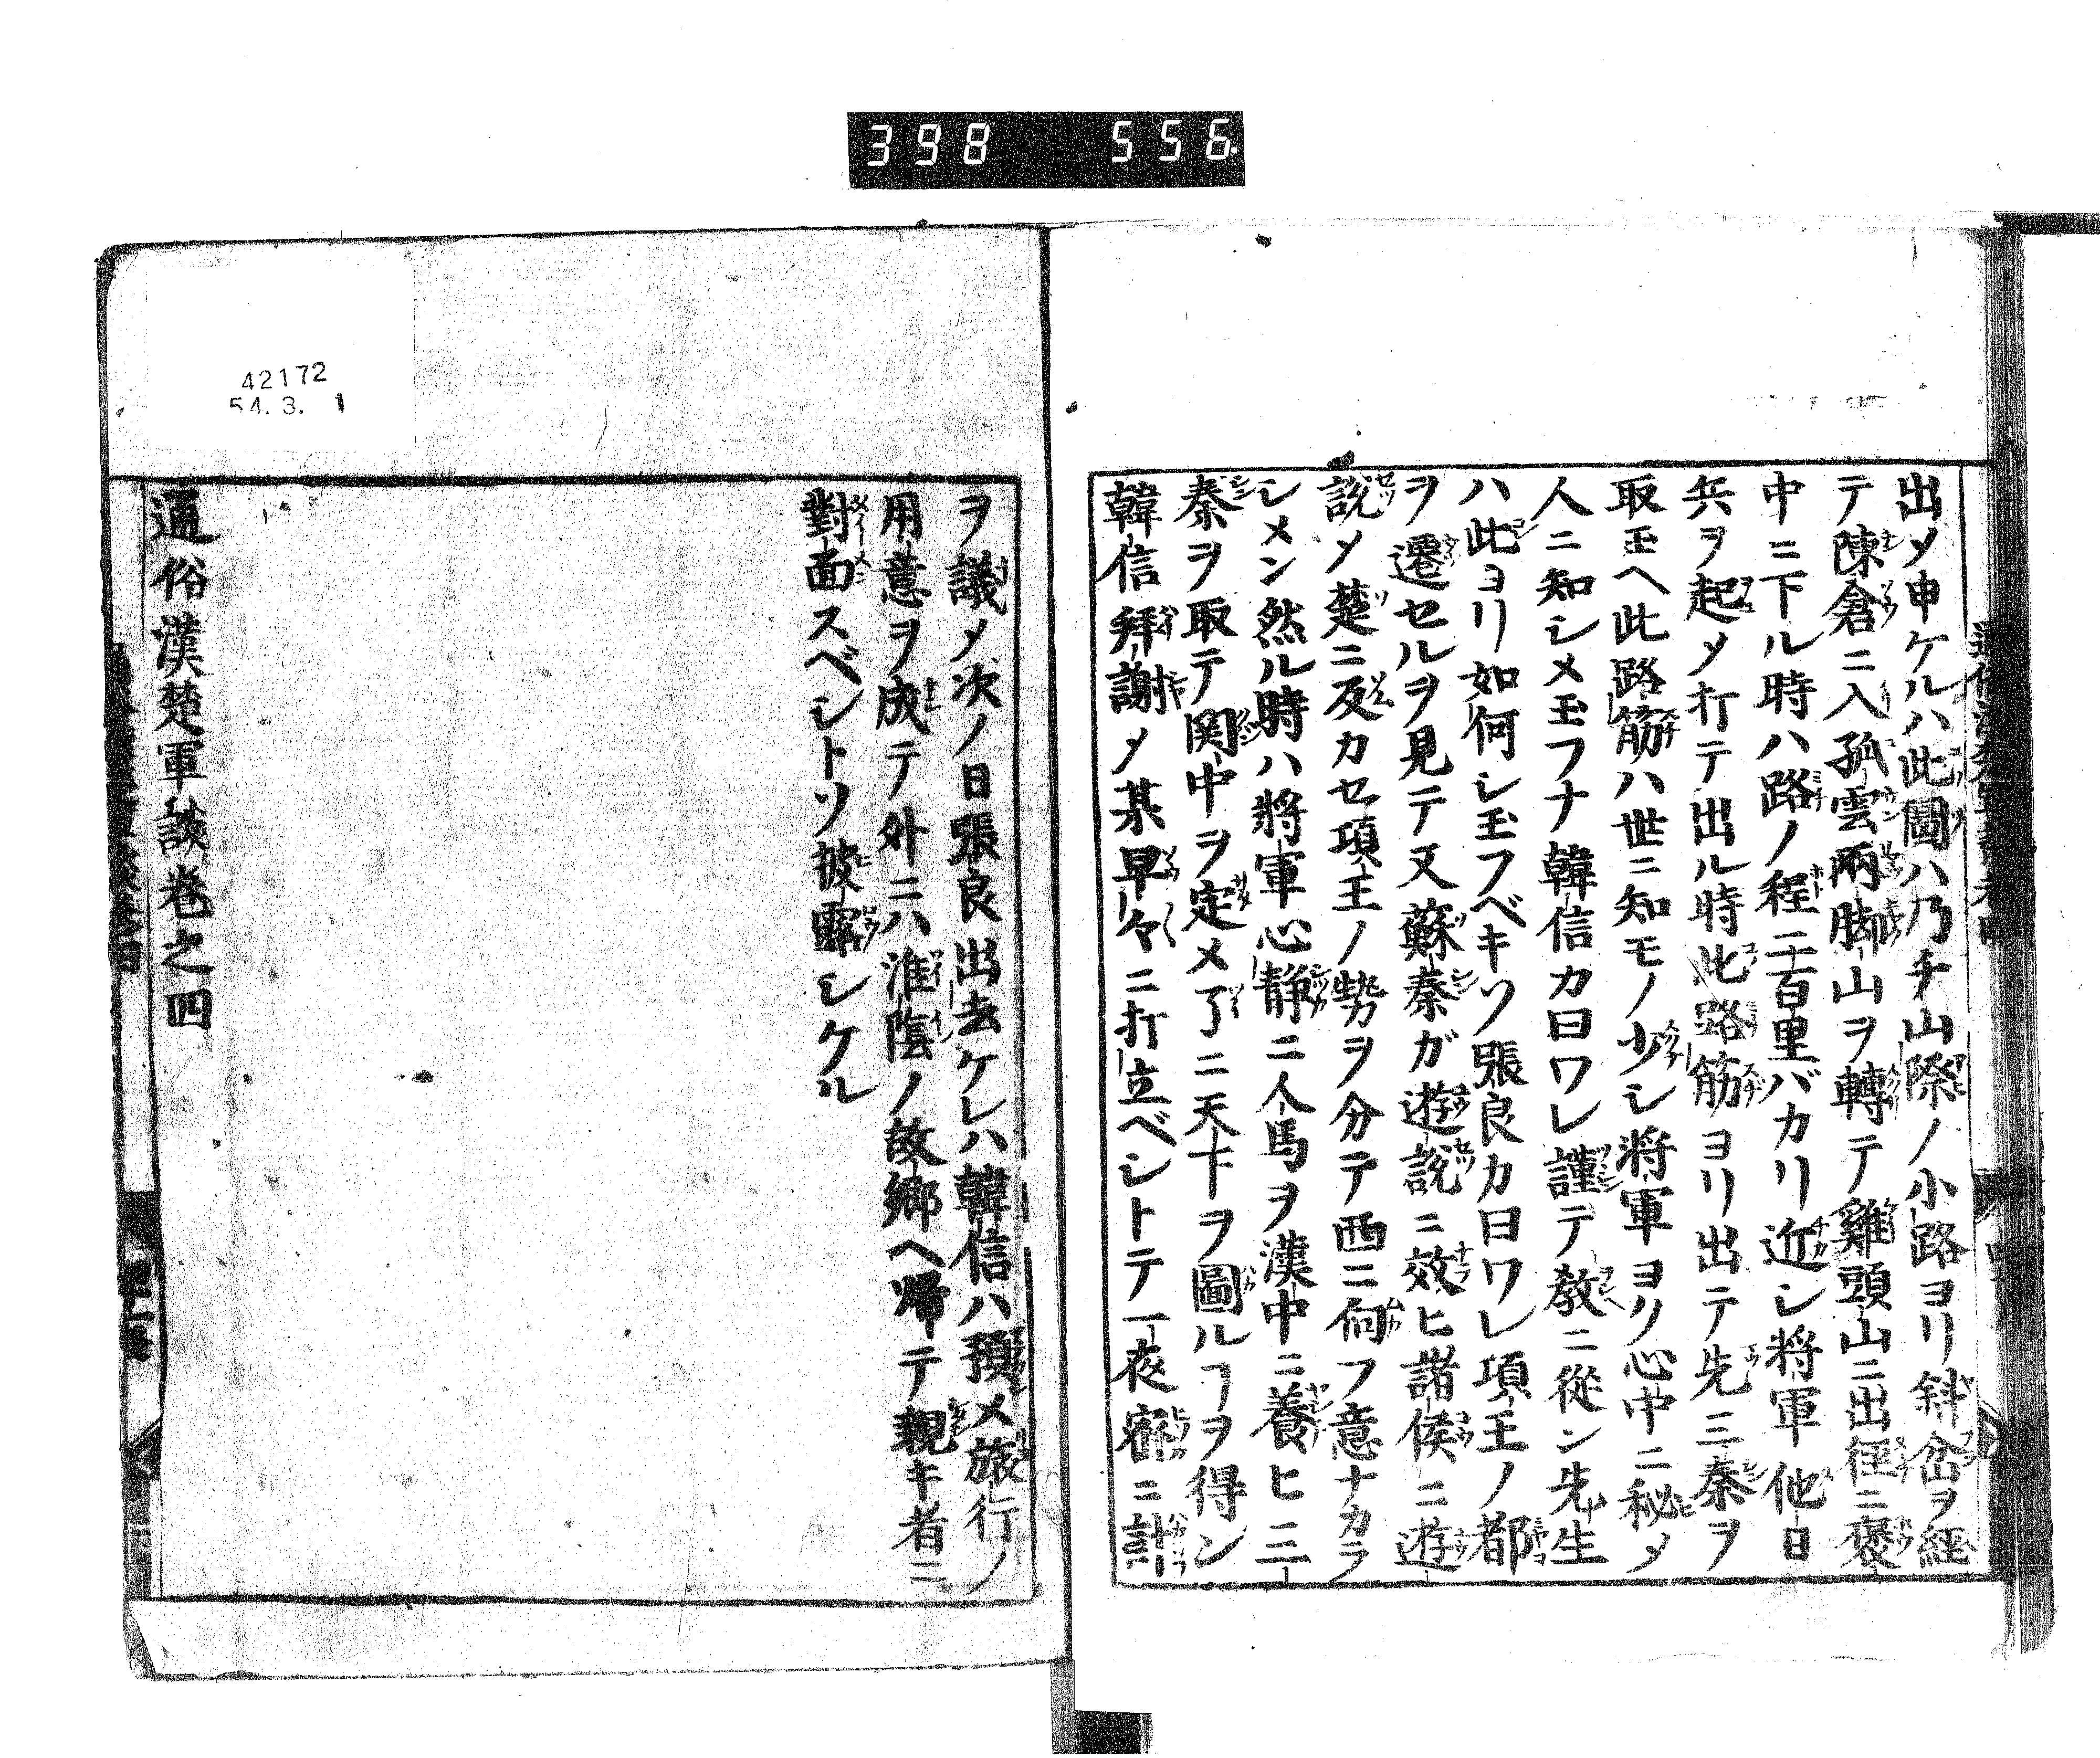 398 556
出メ申ケルハ此圖ハ乃チ山際ノ小路ヨリ斜谷ヲ經
テ陳倉ニ入孤雲兩脚山ヲ轉テ雞頭山ニ出徑ニ褒
中ニ下ル時ハ路ノ程二百里バカリ近シ將軍他日
兵ヲ起メ打テ出ル時此路筋ヨリ出テ先三秦ヲ
取玉ヘ此路筋ハ世ニ知モノ少シ將軍ヨク心中ニ秘メ
人ニ知シメ玉フナ韓信カ曰ワレ謹テ教ニ從ン先生
ハ此ヨリ如何シ玉フベキソ張良カ曰ワレ項王ノ都
ヲ遷セルヲ見テ又蘇秦ガ遊説ニ效ヒ諸侯ニ遊
説メ楚ニ反カセ項王ノ勢ヲ分テ西ニ向フ意ナカラ
シメン然ル時ハ將軍心静ニ人馬ヲ漢中ニ養ヒ三
秦ヲ取テ関中ヲ定メ了ニ天下ヲ圖ルヿヲ得ン
韓信拜謝メ某早々ニ打立ベシトテ一夜密ニ計
ヲ議メ次ノ日張良出去ケレハ韓信ハ預メ旅行ノ
用意ヲ成テ外ニハ淮陰ノ故郷ヘ帰テ親キ者ニ
對面スベシトソ披露シケル
通俗漢楚軍談卷之四
42172
54. 3. 1